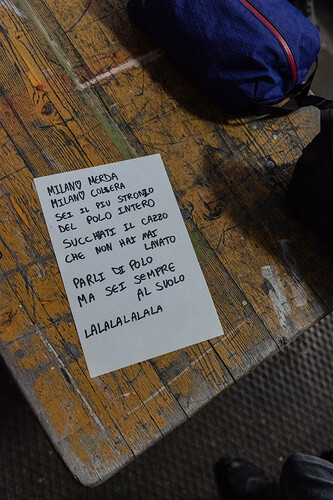 MILANO MERDA
MILANO COLERA
SEI IL PIU STRONZO
DEL POLO INTERO
SUCCHIATI IL CAZZO
CHE NON HAI MAI
LAVATO
PARLI DI POLO
MA SEI SEMPRE
AL SUOLO
LALALALALALA